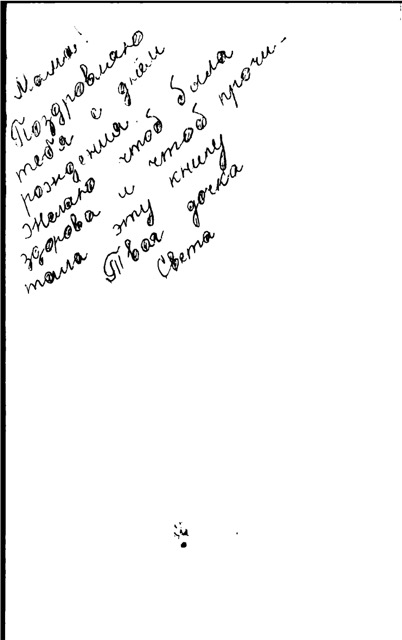 Мама!
Поздравляю
тебя с днём
рождения.
Желаю чтоб была
здорова и чтоб прочи-
тала эту книгу
Твоя дочка
Света